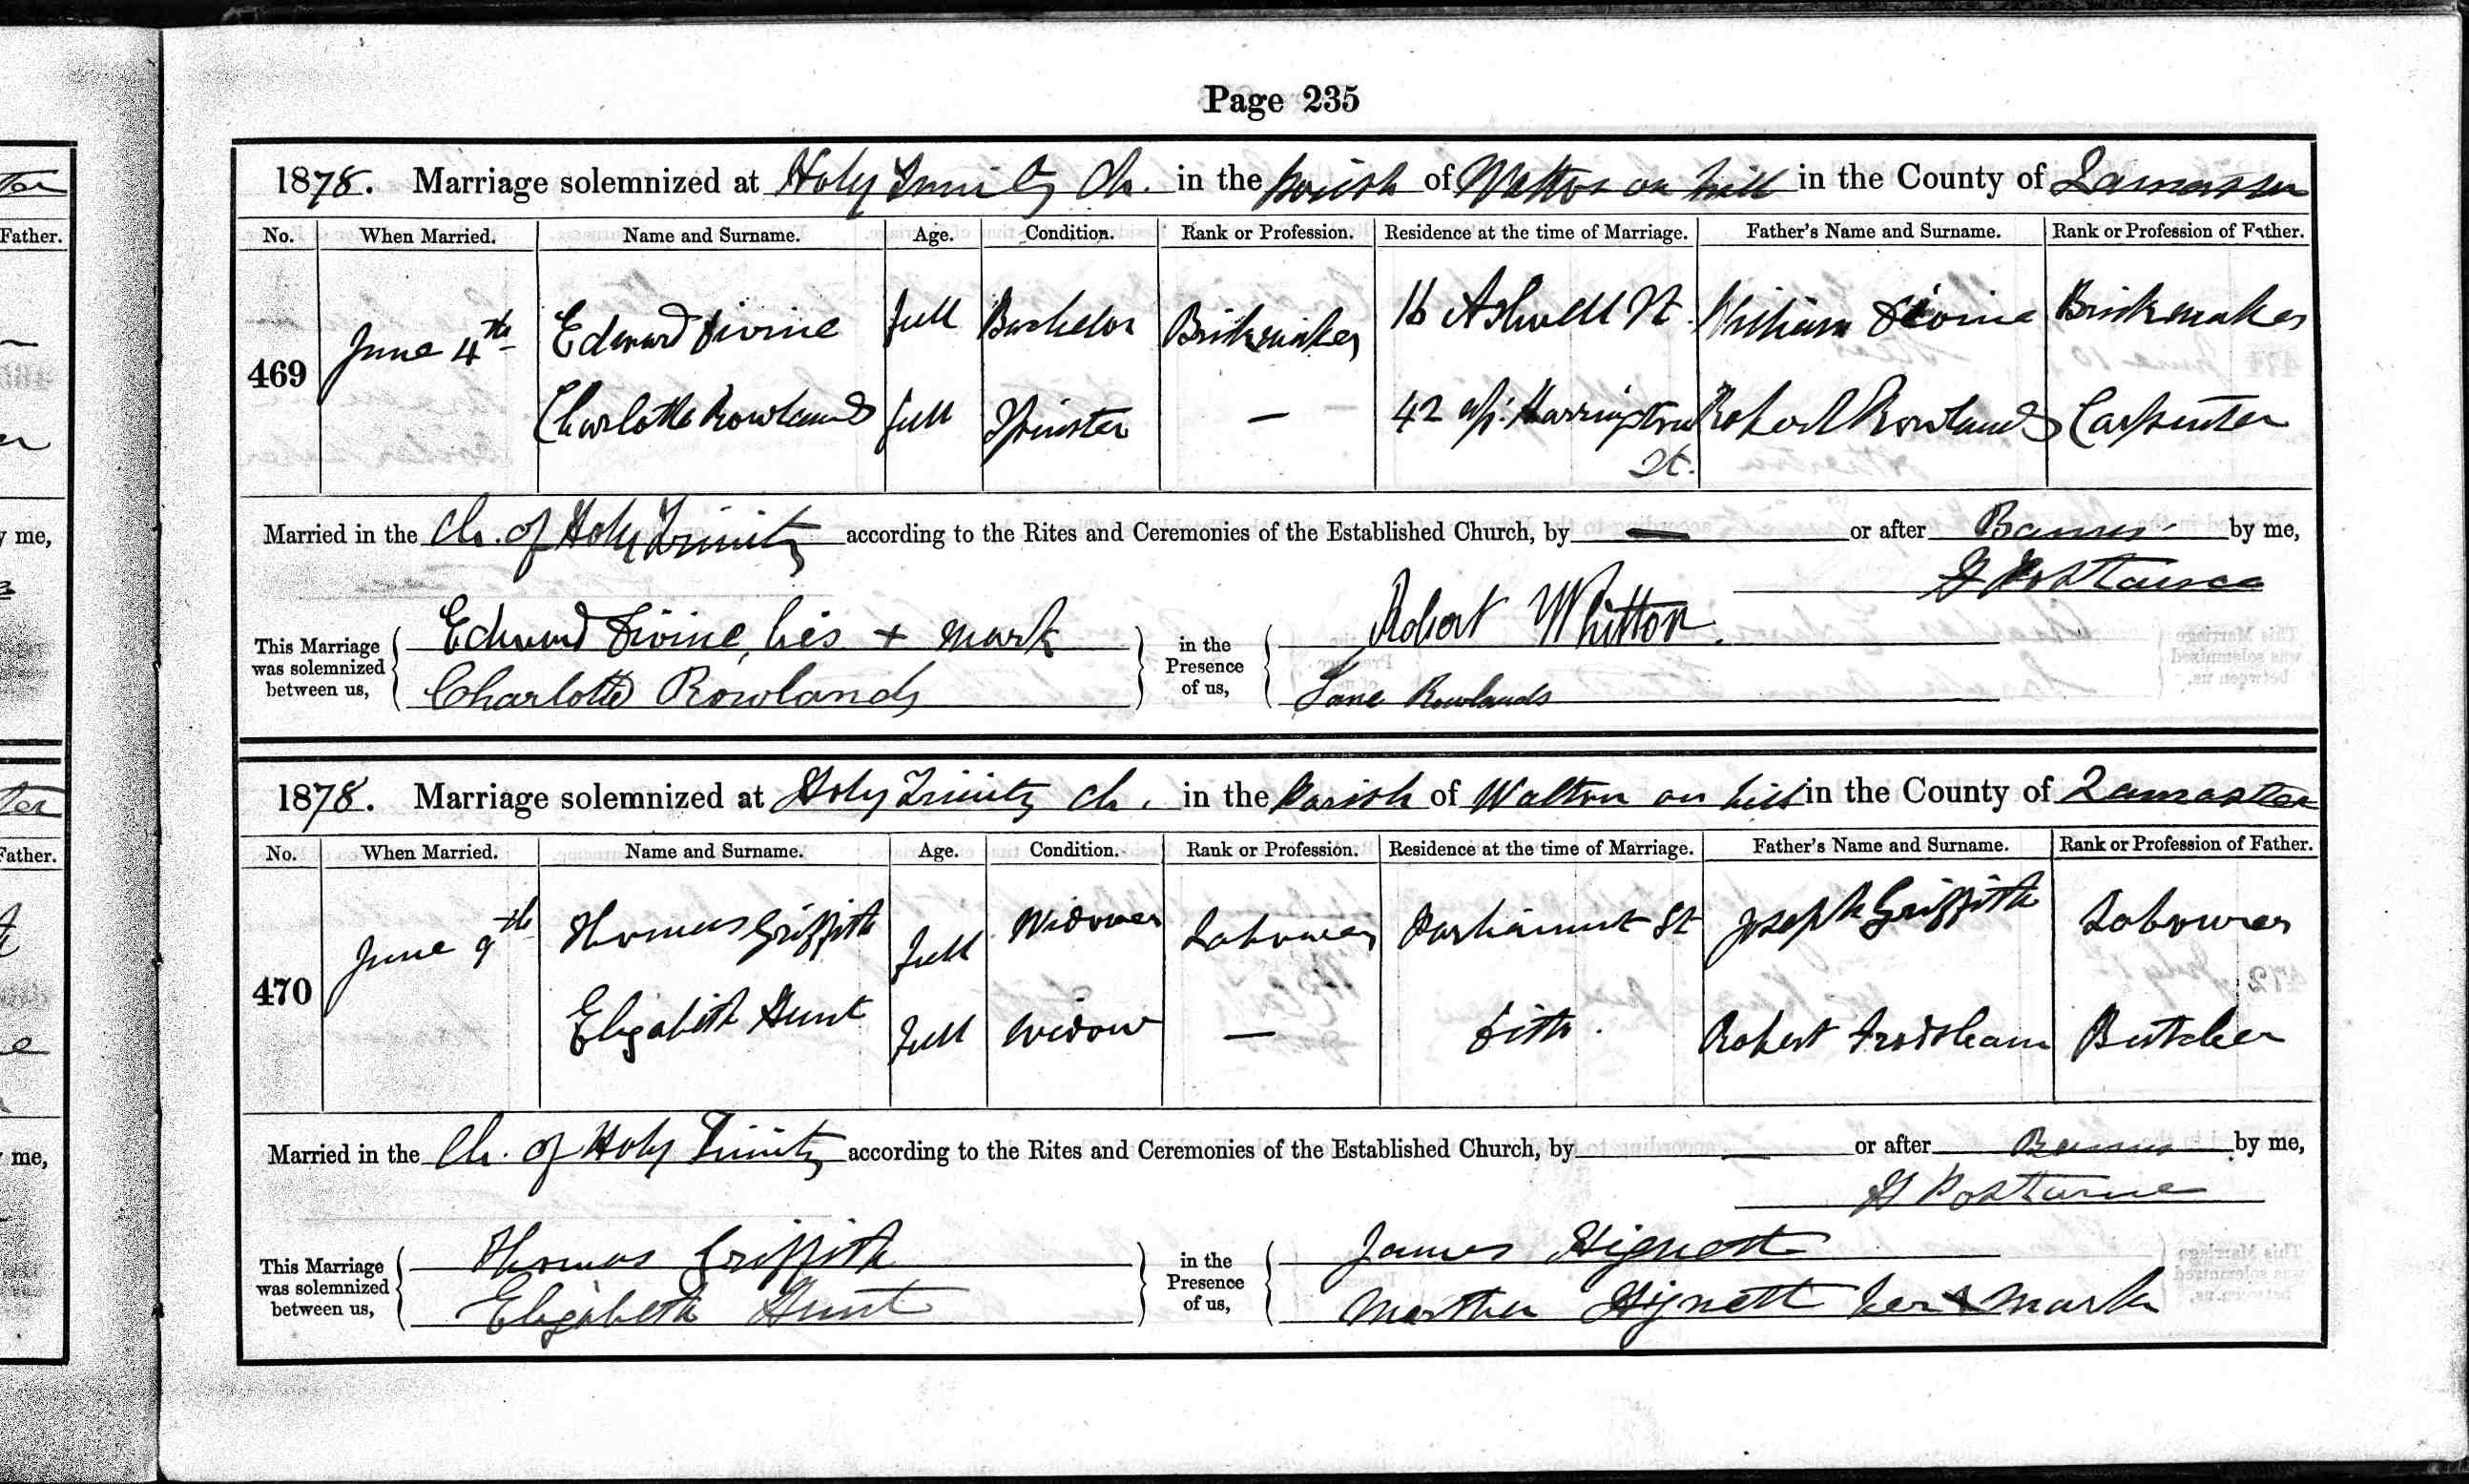 Page 235
1878. Marriage solemnized at Holy Trinity Ch. in the parish of Walton on hill in the County of Lancaster
No. When Married. Name and Surname. Age. Condition. Rank or Profession. Residence at the time of Marriage. Father's Name and Surname. Rank or Profession of Father.
469 June 4th Edward Divine full Bachelor Brickmaker 16 Ashwell St William Divine Brickmaker
Charlotte Rowlands full Spinster — 42 Harrington St. Robert Rowlands Carpenter
Married in the Ch. of Holy Trinity according to the Rites and Ceremonies of the Established Church, by — or after Banns by me,
This Marriage was solemnized between us, Edward Divine, his + mark in the Presence of us, Robert Whitton.
Charlotte Rowlands Jane Rowlands
1878. Marriage solemnized at Holy Trinity Ch. in the Parish of Walton on hill in the County of Lancaster
No. When Married. Name and Surname. Age. Condition. Rank or Profession. Residence at the time of Marriage. Father's Name and Surname. Rank or Profession of Father.
470 June 9th Thomas Griffith full Widower Labourer Parliament St Joseph Griffith Labourer
Elizabeth Hunt full Widow — ditto. Robert Frodsham Butcher
Married in the Ch. of Holy Trinity according to the Rites and Ceremonies of the Established Church, by — or after Banns by me,
This Marriage was solemnized between us, Thomas Griffith in the Presence of us, James Hignett
Elizabeth Hunt Martha Hignett her + mark